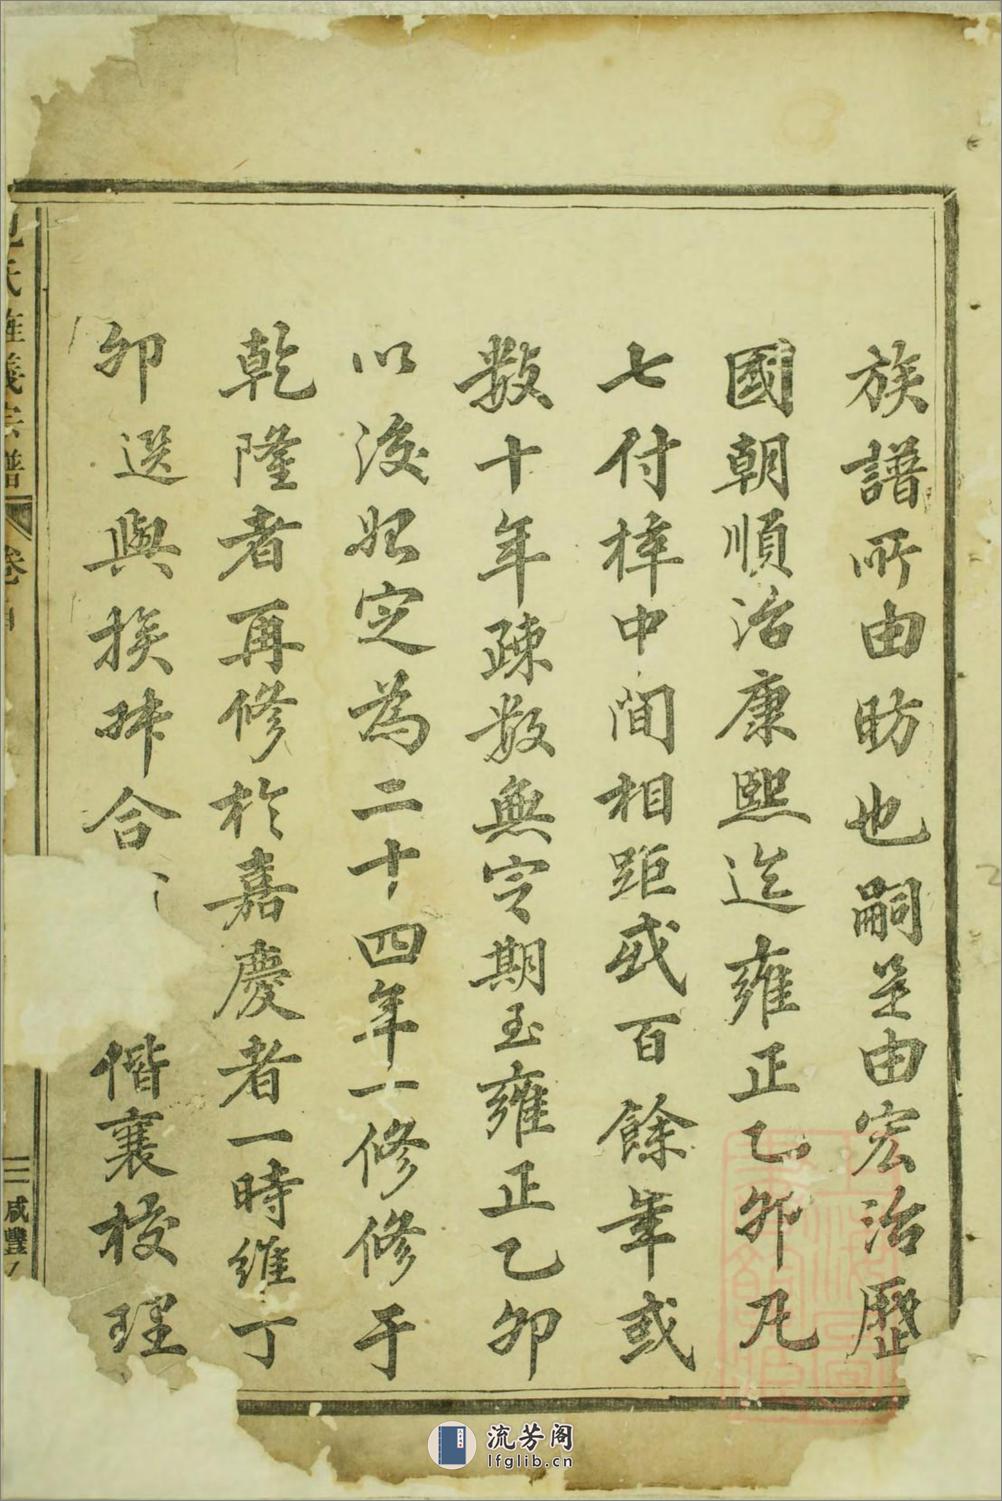 族譜所由昉也嗣是由宏治歷
國朝順治康熙迄雍正乙卯凡
七付梓中間相距或百餘年或
數十年疎數無定期至雍正乙卯
以後始定為二十四年一修修于
乾隆者再修於嘉慶者一時維丁
卯選與族
合
偕襄校理
氏旌義宗譜
卷
三
咸豐
流芳阁
lfglib.cn